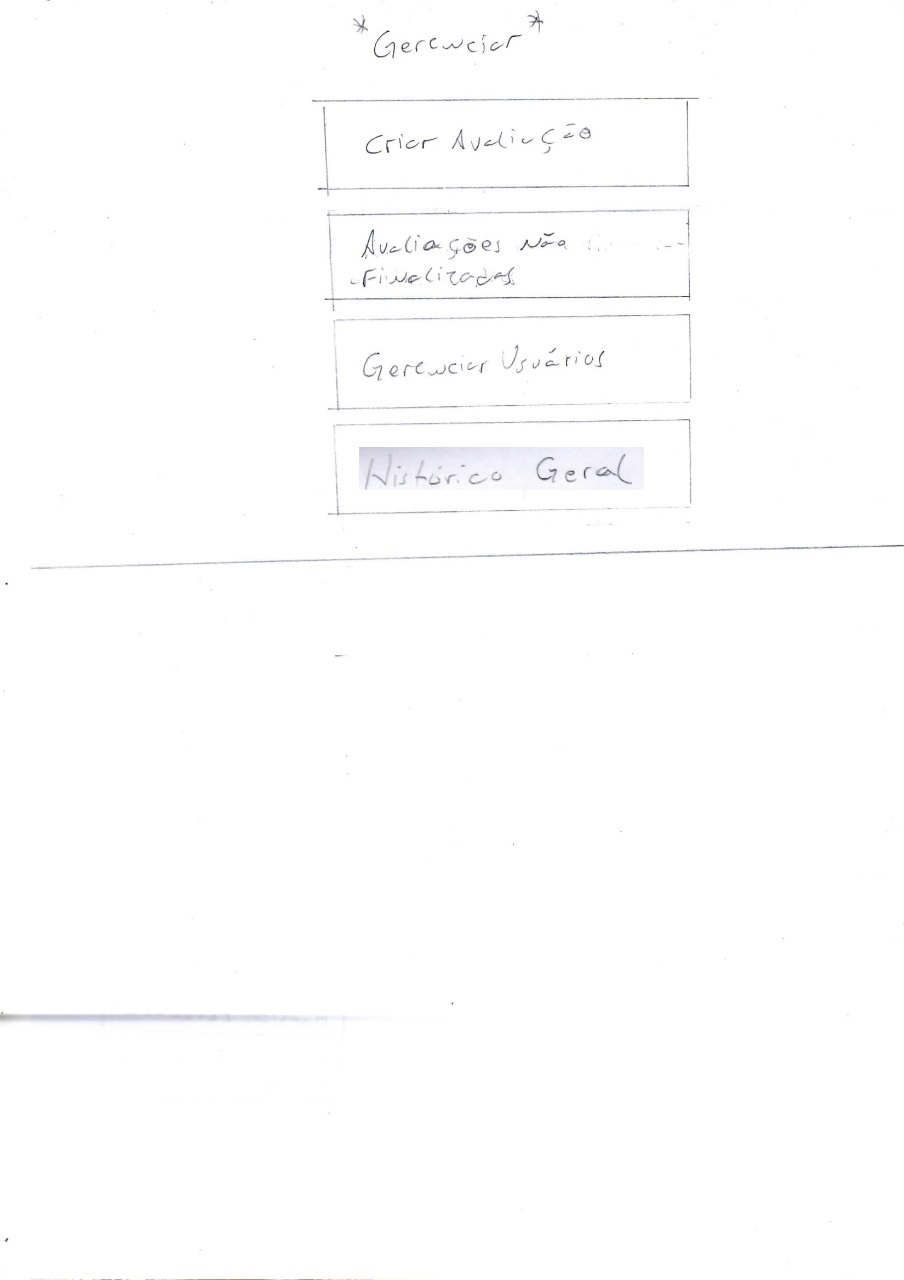 *Gerenciar*
Criar Avaliação
Avaliações Não
Finalizadas
Gerenciar Usuários
Histórico Geral